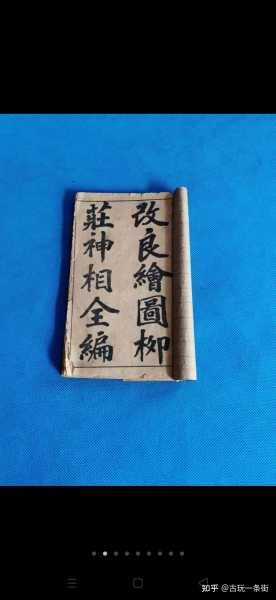 改良繪圖柳
莊神相全編
知乎 @古玩一条街